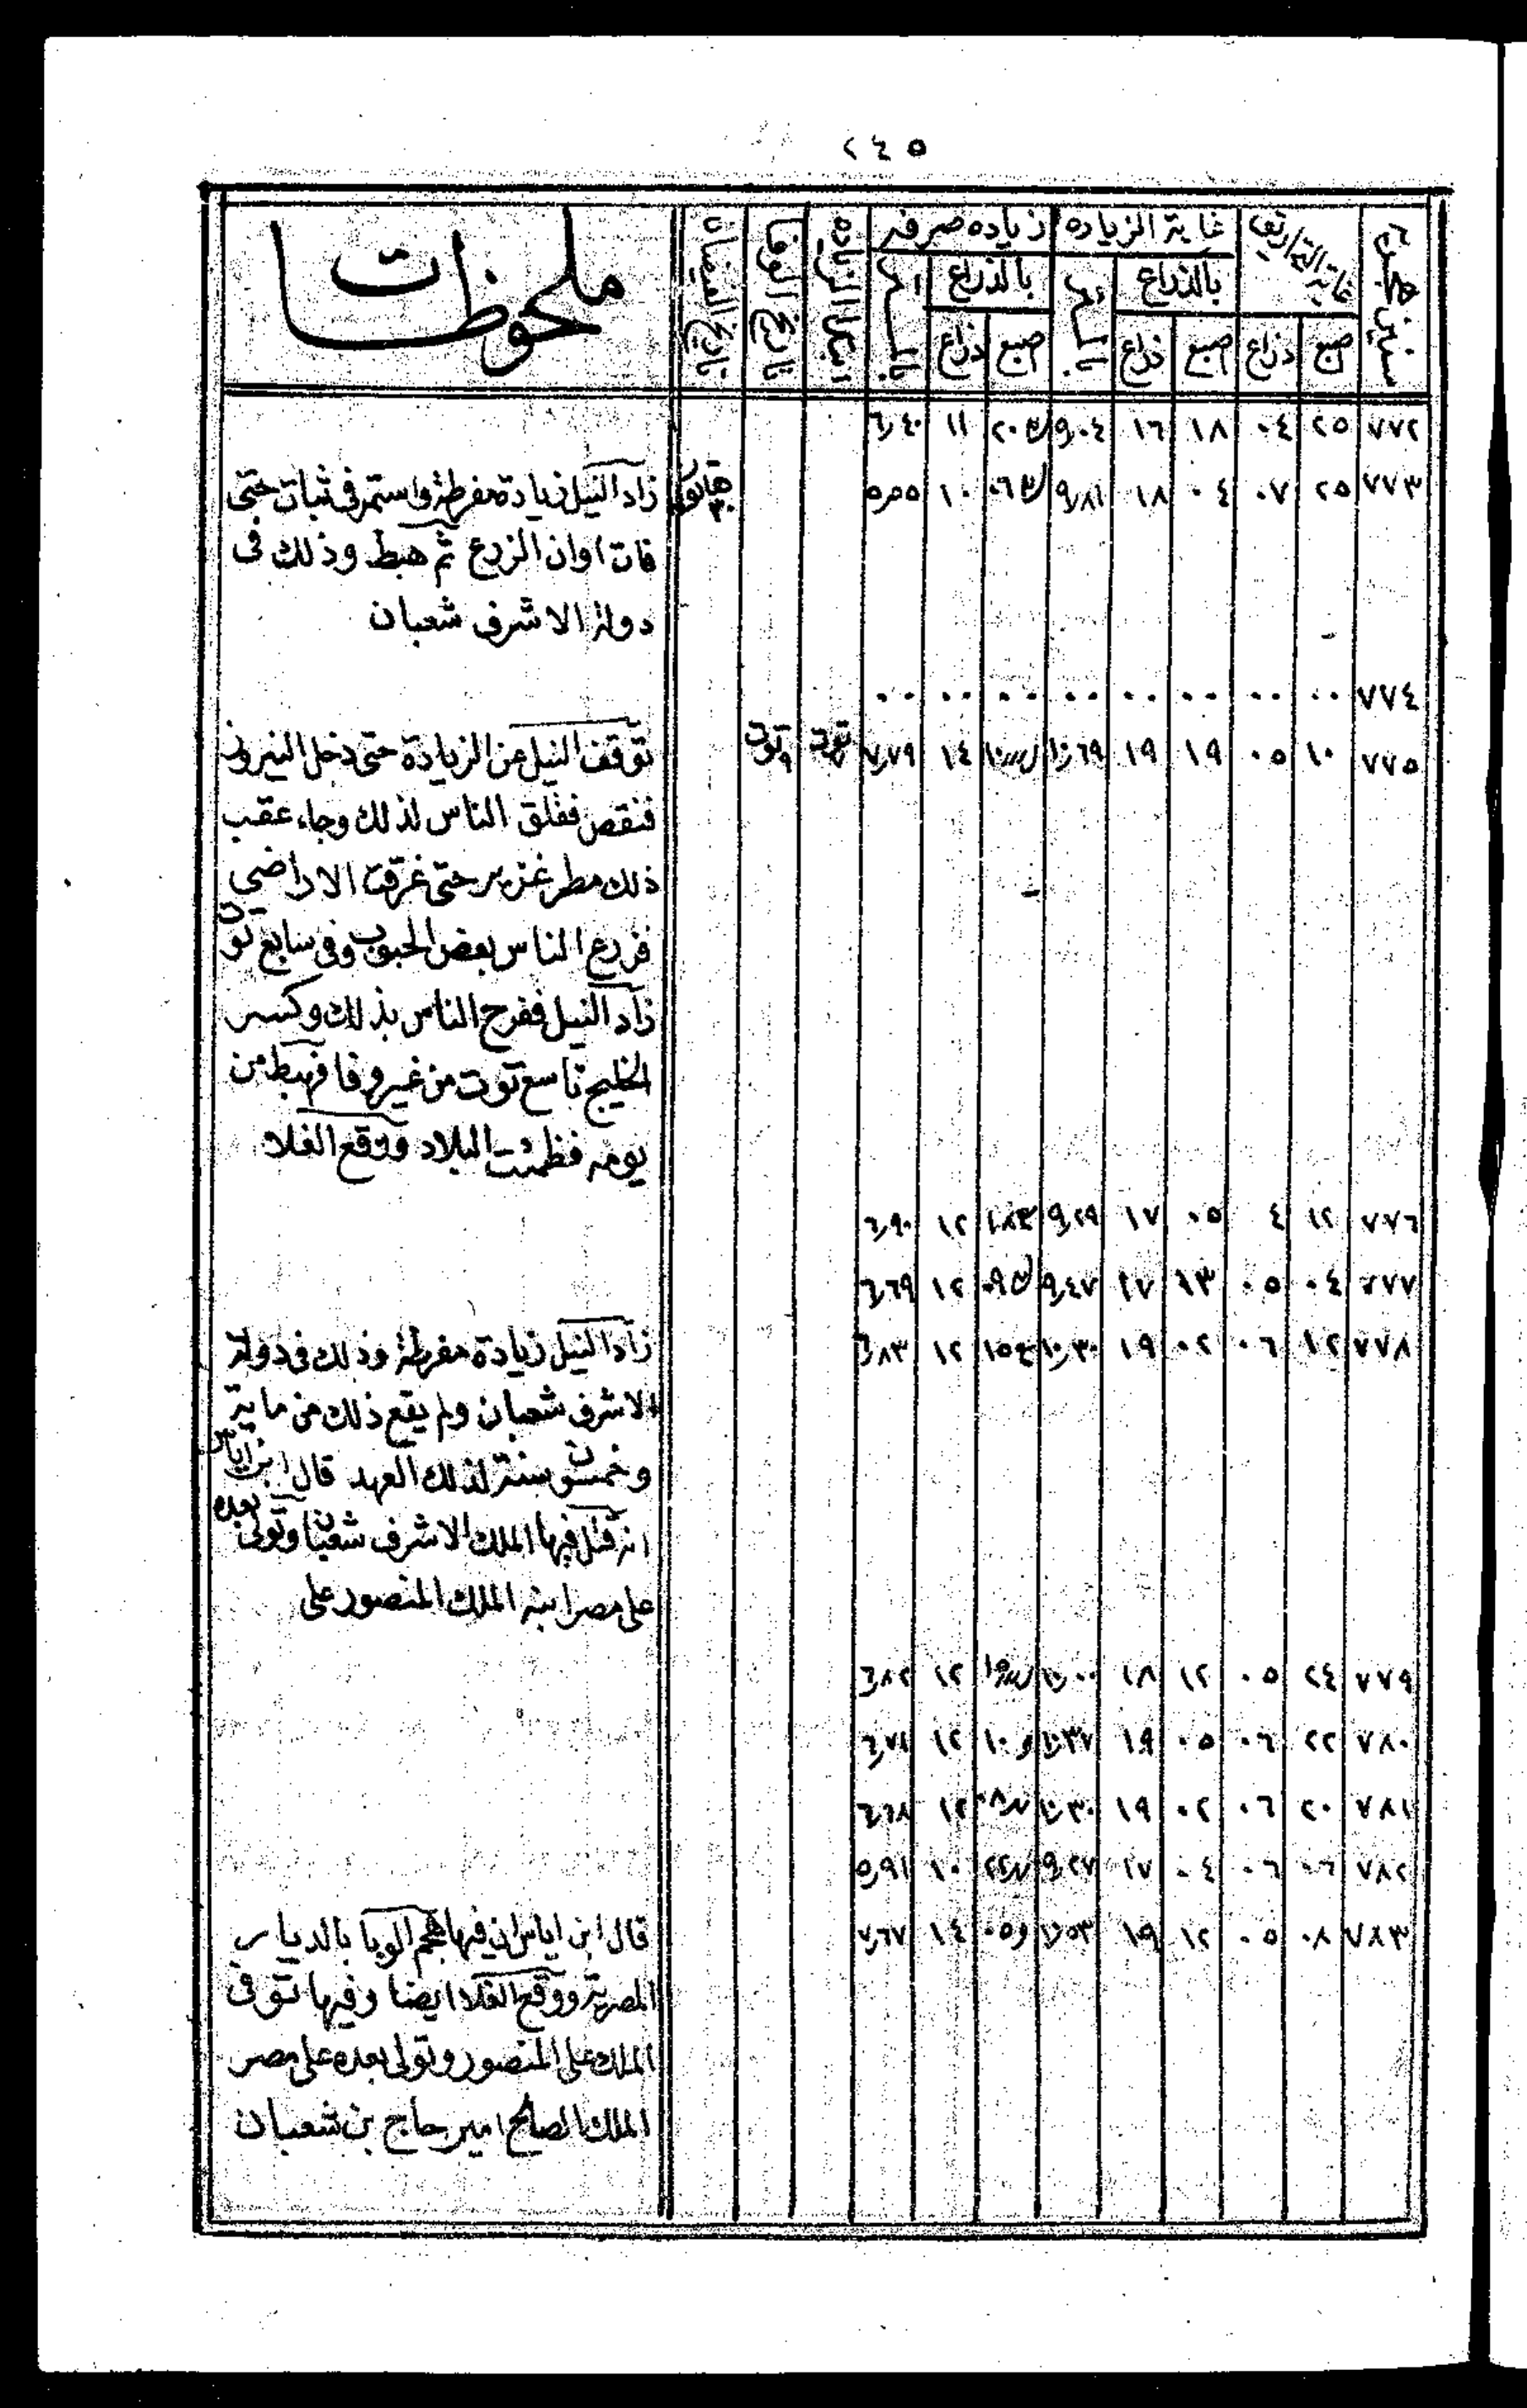 ٢٤٥
سنين هجرية غاية التحاريق غاية الزياده زياده صرفه ابتدا الزياده تاريخ الوفا تاريخ الفيضان ملحوظات
بالذراع بالذراع
صبع ذراع صبع ذراع صبع ذراع
٧٧٢ ٢٥ ٠٤ ١٨ ١٦ ٩,٠٤ ٢٠ ١١ ٦,٤٠
٧٧٣ ٢٥ ٠٧ ٠٤ ١٨ ٩,٨١ ٠٦ ١٠ ٥,٥٥ زاد النيل زيادة مفرطة واستمر فى ثبات حتى
فات اوان الزرع ثم هبط وذلك فى
دولة الاشرف شعبان
٧٧٤ ٠٠ ٠٠ ٠٠ ٠٠ ٠٠ ٠٠ ٠٠ ٠٠
٧٧٥ ١٠ ٠٥ ١٩ ١٩ ١٠,٦٩ ١٤ ٧,٧٩ توت ٩ توت توقف النيل عن الزيادة حتى دخل النيروز
فنقص فقلق الناس لذلك وجاء عقب
ذلك مطر غزير حتى غرقت الاراضى
فزرع الناس بعض الحبوب وفى سابع توت
زاد النيل ففرح الناس بذلك وكسر
الخليج تاسع توت من غير وفا فهبط من
يومه فظمئت البلاد ووقع الغلا
٧٧٦ ١٢ ٤ ٠٥ ١٧ ٩,٢٩ ١٢ ٦,٩٠
٧٧٧ ٠٤ ٠٥ ١٣ ١٧ ٩,٤٧ ٠٩ ١٢ ٦,٦٩
٧٧٨ ١٢ ٠٦ ٠٢ ١٩ ١٠,٣٠ ١٥ ١٢ ٦,٨٣ زاد النيل زيادة مفرطة وذلك فى دولة
الاشرف شعبان ولم يقع ذلك من ماية
وخمسون سنة لذلك العهد قال ابن اياس
انه قتل فيها الملك الاشرف شعبان وتولى بعده
على مصر ابنه الملك المنصور على
٧٧٩ ٢٤ ٠٥ ١٢ ١٨ ١٠,٠٠ ١٥ ١٢ ٦,٨٢
٧٨٠ ٢٢ ٠٦ ٠٥ ١٩ ١٠,٣٧ ١٠ ١٢ ٦,٧١
٧٨١ ٢٠ ٠٦ ٠٢ ١٩ ١٠,٣٠ ٠٨ ١٢ ٦,٦٨
٧٨٢ ٠٦ ٠٦ ٠٤ ١٧ ٩,٢٧ ٢٢ ١٠ ٥,٩١
٧٨٣ ٠٨ ٠٥ ١٢ ١٩ ١٠,٥٣ ٠٥ ١٤ ٧,٦٧ قال ابن اياس ان فيها هجم الوبا بالديار
المصرية ووقع الغلا ايضا وفيها توفى
الملك على المنصور وتولى بعده على مصر
الملك الصالح امير حاج بن شعبان